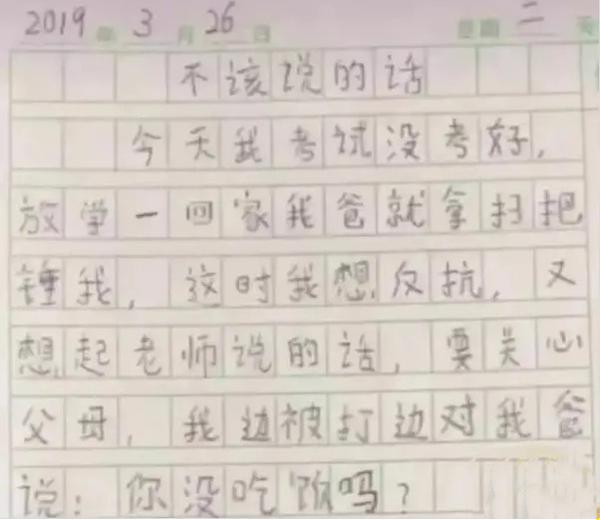 2019年3月26日 星期二 天
不该说的话
今天我考试没考好，
放学一回家我爸就拿扫把
锤我，这时我想反抗，又
想起老师说的话，要关心
父母，我边被打边对我爸
说：你没吃饭吗？